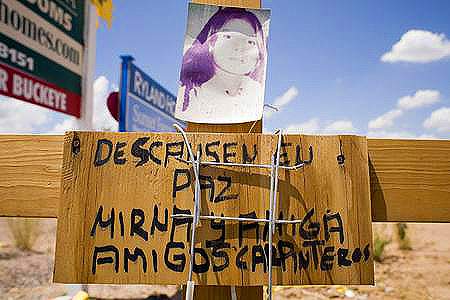 homes.com
8151
BUCKEYE
RYLAND
Sunset
DESCANSEN EN
PAZ
MIRNA Y AMIGA
AMIGOS CARPINTEROS